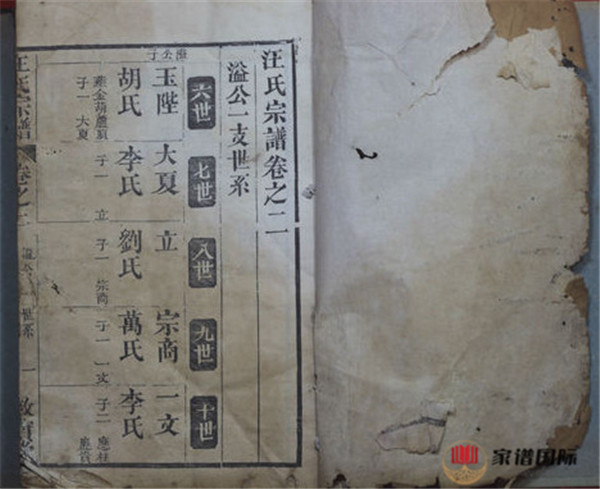 汪氏宗譜卷之二
溢公一支世系
六世 七世 八世 九世 十世
公子
玉陞 大夏 立 宗商 一文
胡氏 李氏 劉氏 萬氏 李氏
葬金葫蘆
子一 大夏
子一 立
子一 宗商
子一 一文
子二 應柱
汪氏宗譜 卷之二 世系 一
家谱国际